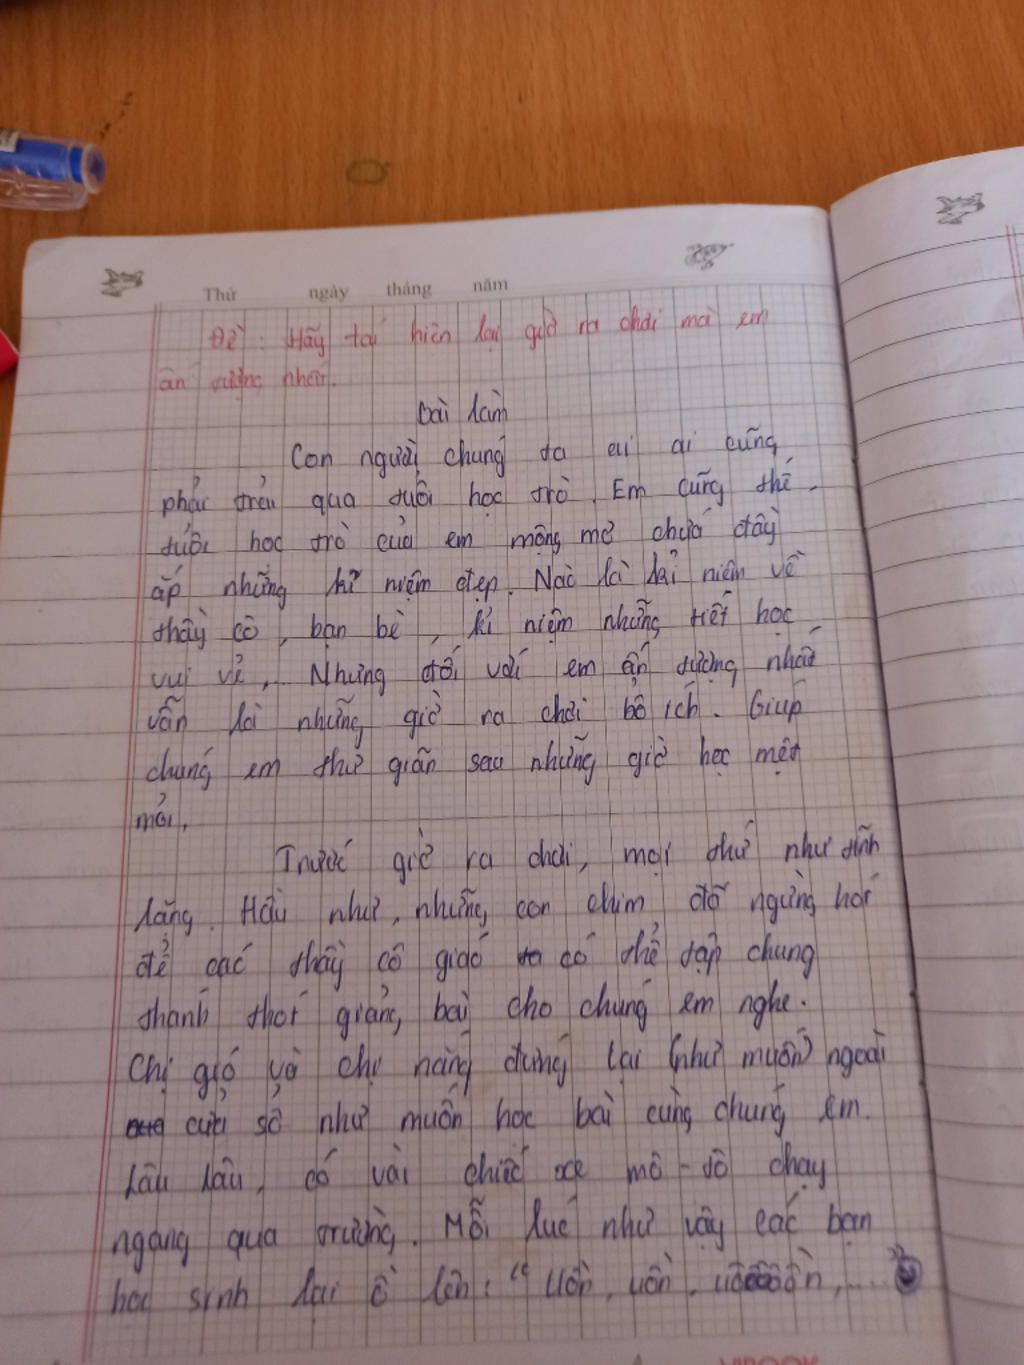 Thứ ngày tháng năm
Đề: Hãy tái hiện lại giờ ra chơi mà em
ấn tượng nhất.
bài làm
Con người chúng ta ai ai cũng
phải trải qua tuổi học trò. Em cũng thế.
tuổi học trò của em mộng mơ chứa đầy
ắp những kỉ niệm đẹp. Nào là kỉ niệm về
thầy cô, bạn bè, kỉ niệm những tiết học
vui vẻ,... Nhưng đối với em ấn tượng nhất
vẫn là những giờ ra chơi bổ ích. Giúp
chúng em thư giãn sau những giờ học mệt
mỏi.
Trước giờ ra chơi, mọi thứ như tĩnh
lặng. Hầu như, những con chim đã ngừng hót
để các thầy cô giáo có thể tập chung
thánh thót giảng bài cho chúng em nghe.
Chị gió và chị nắng đứng lại (như muốn) ngoài
cửa sổ như muốn học bài cùng chúng em.
Lâu lâu, có vài chiếc xe mô-tô chạy
ngang qua trường. Mỗi lúc như vậy các bạn
học sinh lại ồ lên: "uồn, uồn, uồồồồồn,....."